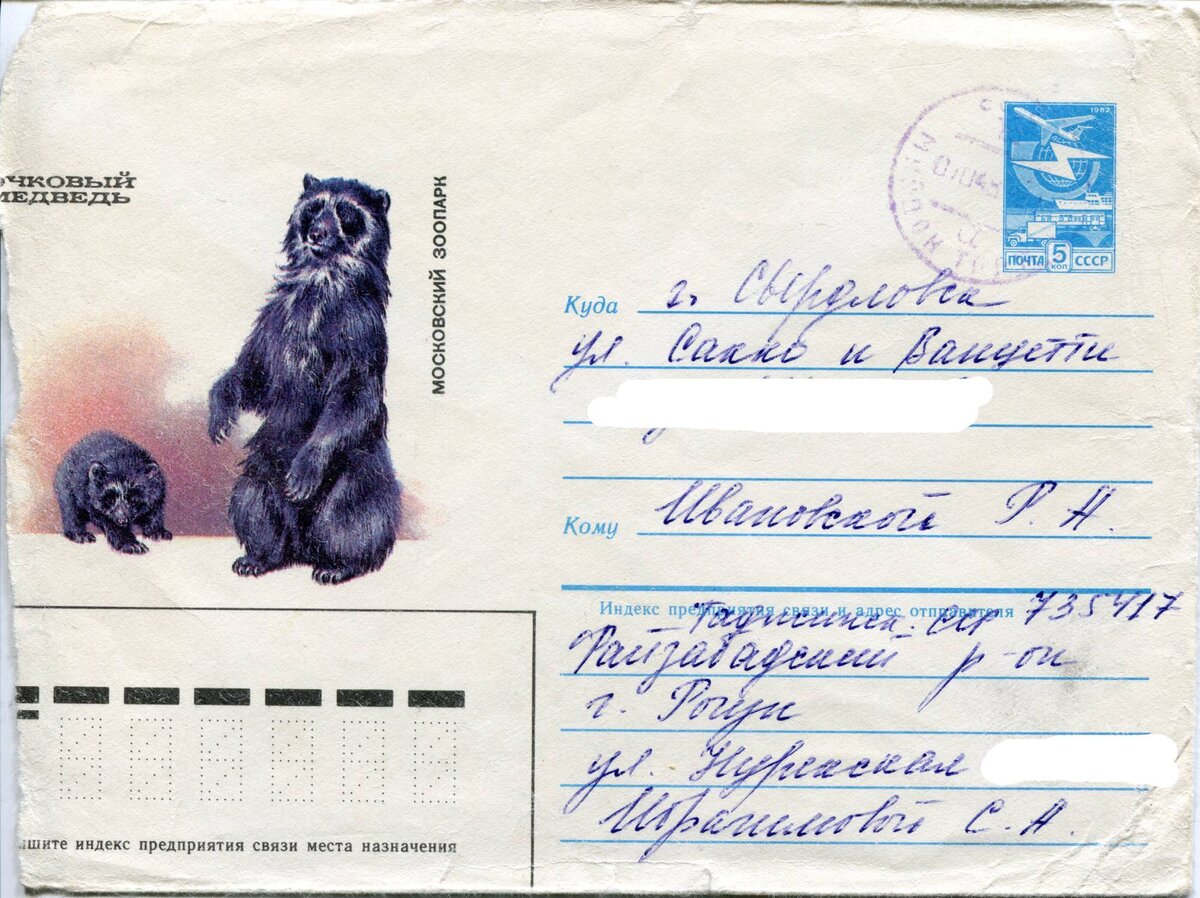 ОЧКОВЫЙ
МЕДВЕДЬ
МОСКОВСКИЙ ЗООПАРК
1982
ПОЧТА 5 КОП СССР
Куда г. Свердловск
ул. Сакко и Ванцетти
Кому Ивановской Р. А.
Индекс предприятия связи и адрес отправителя 735417
Таджикск. ССР
Файзабадский р-он
г. Рогун
ул. Нурекская
Ибрагимовой С. А.
шите индекс предприятия связи места назначения